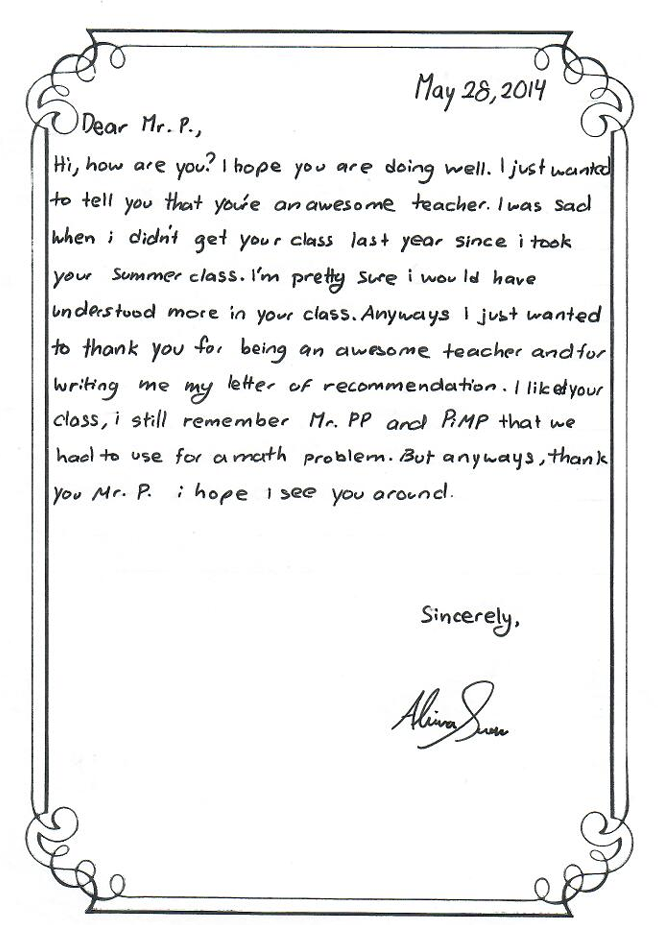 May 28, 2014
Dear Mr. P.,
Hi, how are you? I hope you are doing well. I just wanted
to tell you that you're an awesome teacher. I was sad
when i didn't get your class last year since i took
your summer class. I'm pretty sure i would have
understood more in your class. Anyways I just wanted
to thank you for being an awesome teacher and for
writing me my letter of recommendation. I liked your
class, i still remember Mr. PP and PiMP that we
had to use for a math problem. But anyways, thank
you Mr. P. i hope I see you around.
Sincerely,